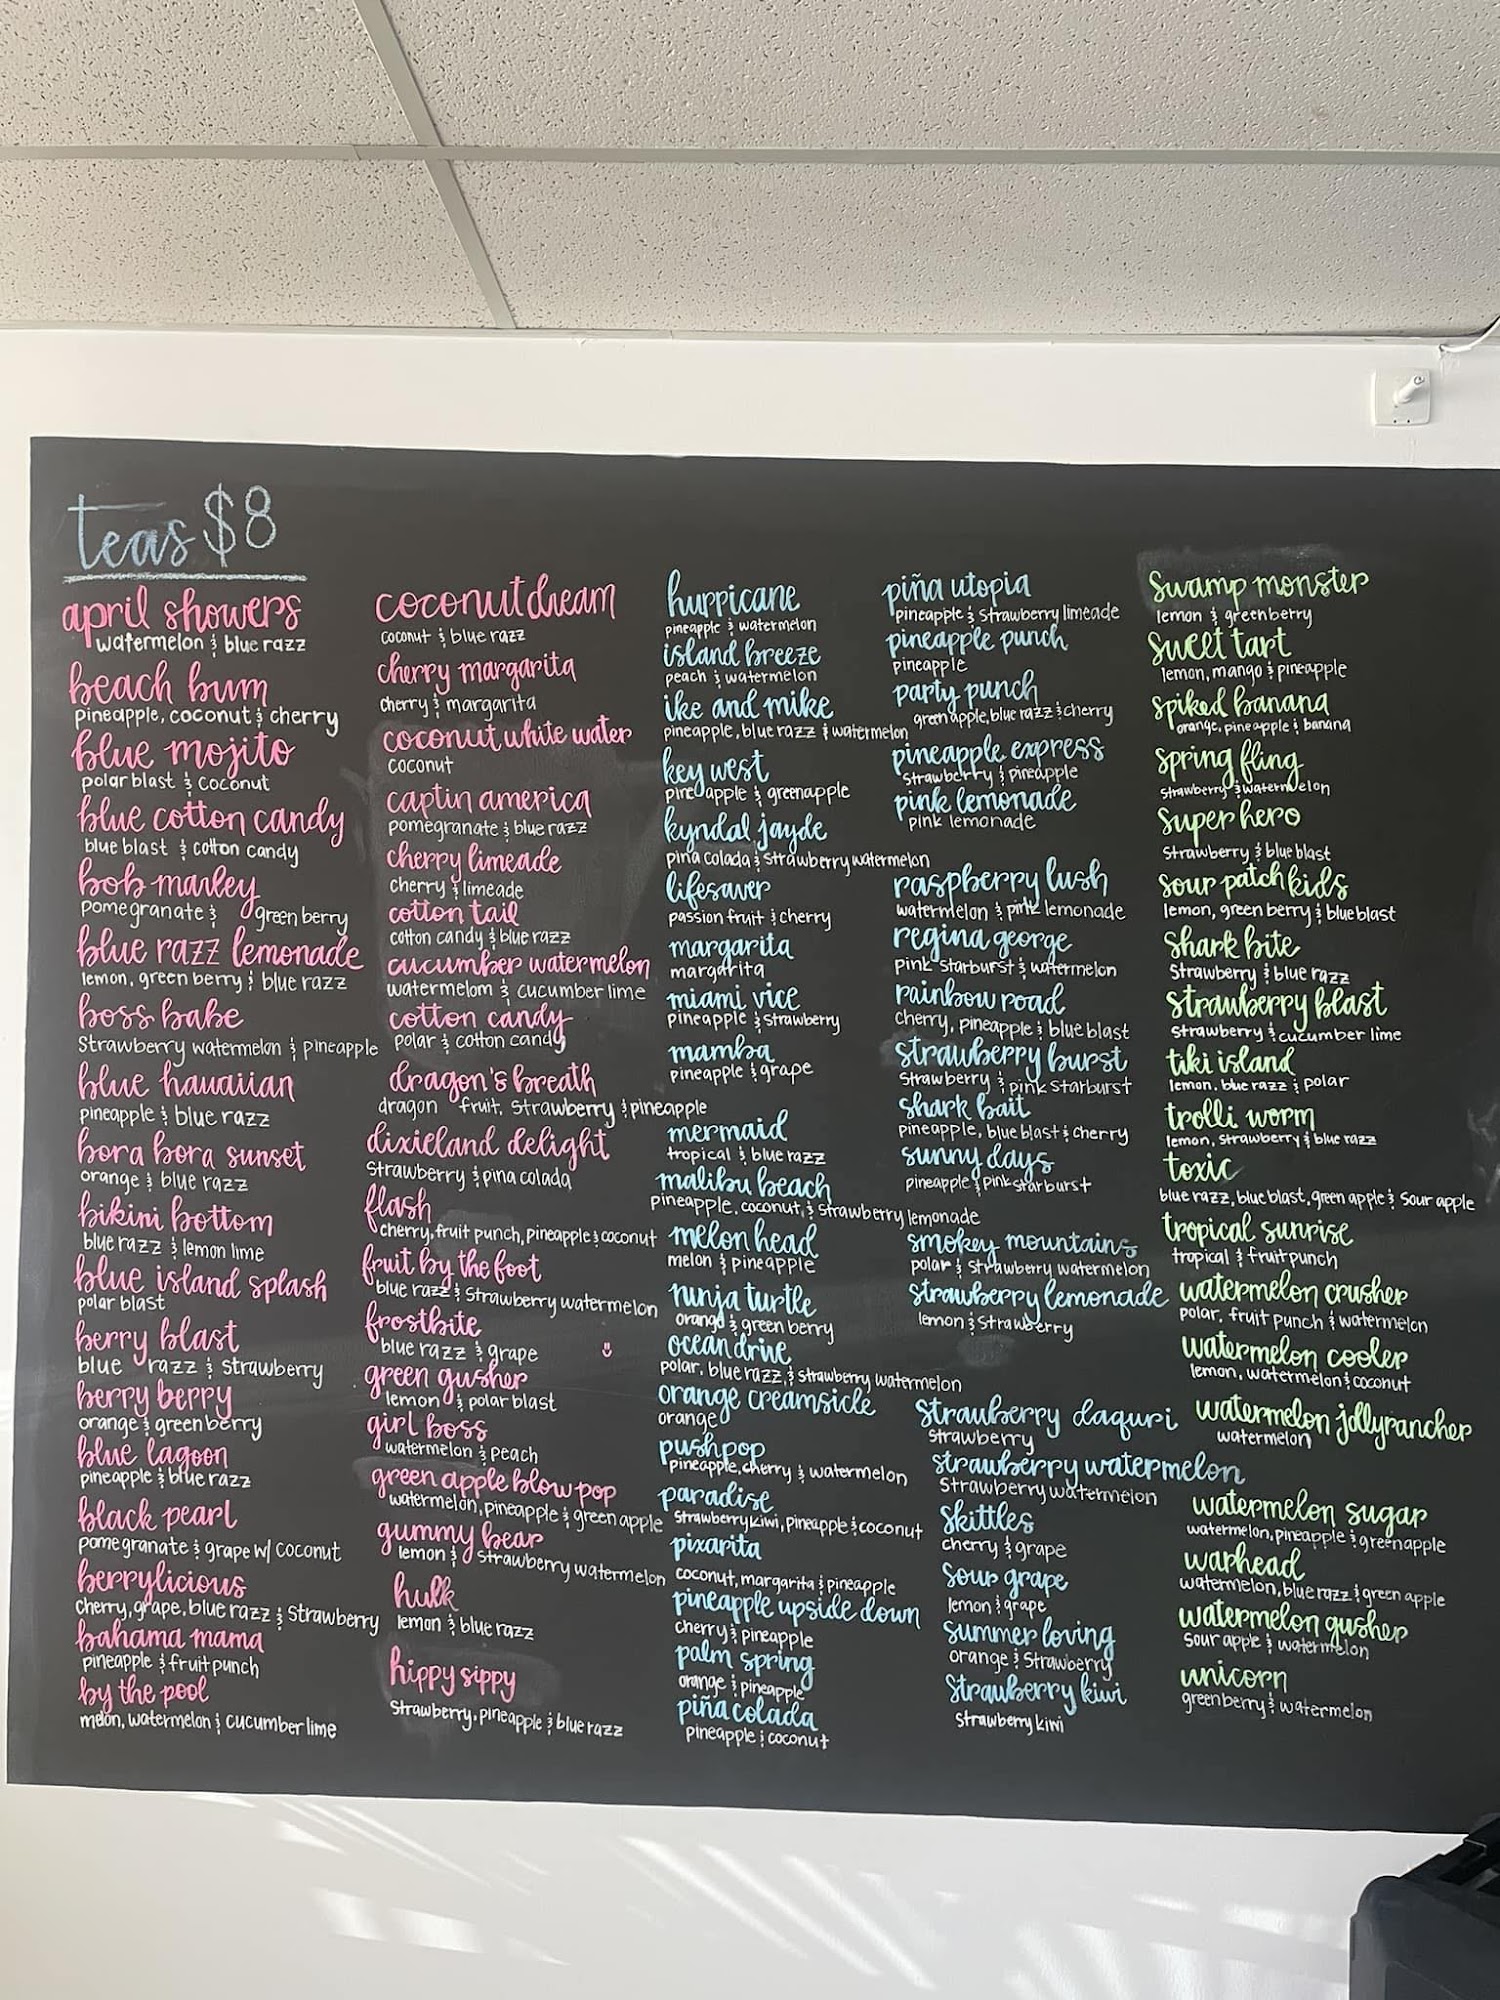 teas $8
april showers
watermelon & blue razz
beach bum
pineapple, coconut & cherry
blue mojito
polar blast & coconut
blue cotton candy
blue blast & cotton candy
bob marley
pomegranate & green berry
blue razz lemonade
lemon, green berry & blue razz
boss babe
Strawberry watermelon & pineapple
blue hawaiian
pineapple & blue razz
bora bora sunset
orange & blue razz
bikini bottom
blue razz & lemon lime
blue island splash
polar blast
berry blast
blue razz & strawberry
berry berry
orange & green berry
blue lagoon
pineapple & blue razz
black pearl
pomegranate & grape w/ coconut
berrylicious
cherry, grape, blue razz & Strawberry
bahama mama
pineapple & fruit punch
by the pool
melon, watermelon & cucumber lime
coconut dream
coconut & blue razz
cherry margarita
cherry & margarita
coconut white water
coconut
captin america
pomegranate & blue razz
cherry limeade
cherry & limeade
cotton tail
cotton candy & blue razz
cucumber watermelon
watermelom & cucumber lime
cotton candy
polar & cotton candy
dragon's breath
dragon fruit, Strawberry & pineapple
dixieland delight
Strawberry & pina colada
flash
cherry, fruit punch, pineapple & coconut
fruit by the foot
blue razz & Strawberry watermelon
frostbite
blue razz & grape
green gusher
lemon & polar blast
girl boss
watermelon & peach
green apple blow pop
watermelon, pineapple & green apple
gummy bear
lemon & Strawberry watermelon
hulk
lemon & blue razz
hippy sippy
Strawberry, pineapple & blue razz
hurricane
pineapple & watermelon
island breeze
peach & watermelon
ike and mike
pineapple, blue razz & watermelon
key west
pineapple & greenapple
kyndal jayde
pina colada & Strawberry watermelon
lifesaver
passion fruit & cherry
margarita
margarita
miami vice
pineapple & strawberry
mamba
pineapple & grape
mermaid
tropical & blue razz
malibu beach
pineapple, coconut, & strawberry lemonade
melon head
melon & pineapple
ninja turtle
orange & green berry
ocean drive
polar, blue razz, & strawberry watermelon
orange creamsicle
orange
pushpop
pineapple, cherry & watermelon
paradise
Strawberry kiwi, pineapple & coconut
pixarita
coconut, margarita & pineapple
pineapple upside down
cherry & pineapple
palm spring
orange & pineapple
piña colada
pineapple & coconut
piña utopia
pineapple & Strawberry limeade
pineapple punch
pineapple
party punch
green apple, blue razz & cherry
pineapple express
Strawberry & pineapple
pink lemonade
pink lemonade
raspberry lush
watermelon & pink lemonade
regina george
pink starburst & watermelon
rainbow road
cherry, pineapple & blue blast
strawberry burst
Strawberry & pink Starburst
shark bait
pineapple, blue blast & cherry
sunny days
pineapple & pink starburst
smokey mountains
polar & Strawberry watermelon
strawberry lemonade
lemon & Strawberry
Strawberry daquri
Strawberry
strawberry watermelon
Strawberry watermelon
Skittles
cherry & grape
Sour grape
lemon & grape
summer loving
orange & Strawberry
Strawberry kiwi
Strawberry kiwi
Swamp monster
lemon & greenberry
Sweet tart
lemon, mango & pineapple
spiked banana
orange, pineapple & banana
spring fling
strawberry & watermelon
super hero
Strawberry & blue blast
sour patch kids
lemon, green berry & blue blast
Shark bite
Strawberry & blue razz
strawberry blast
Strawberry & cucumber lime
tiki island
lemon, blue razz & polar
trolli worm
lemon, strawberry & blue razz
toxic
blue razz, blue blast, green apple & Sour apple
tropical sunrise
tropical & fruit punch
watermelon crusher
polar, fruit punch & watermelon
watermelon cooler
lemon, watermelon & coconut
watermelon jollyrancher
watermelon
watermelon sugar
watermelon, pineapple & greenapple
warhead
watermelon, blue razz & green apple
watermelon gusher
Sour apple & watermelon
unicorn
greenberry & watermelon